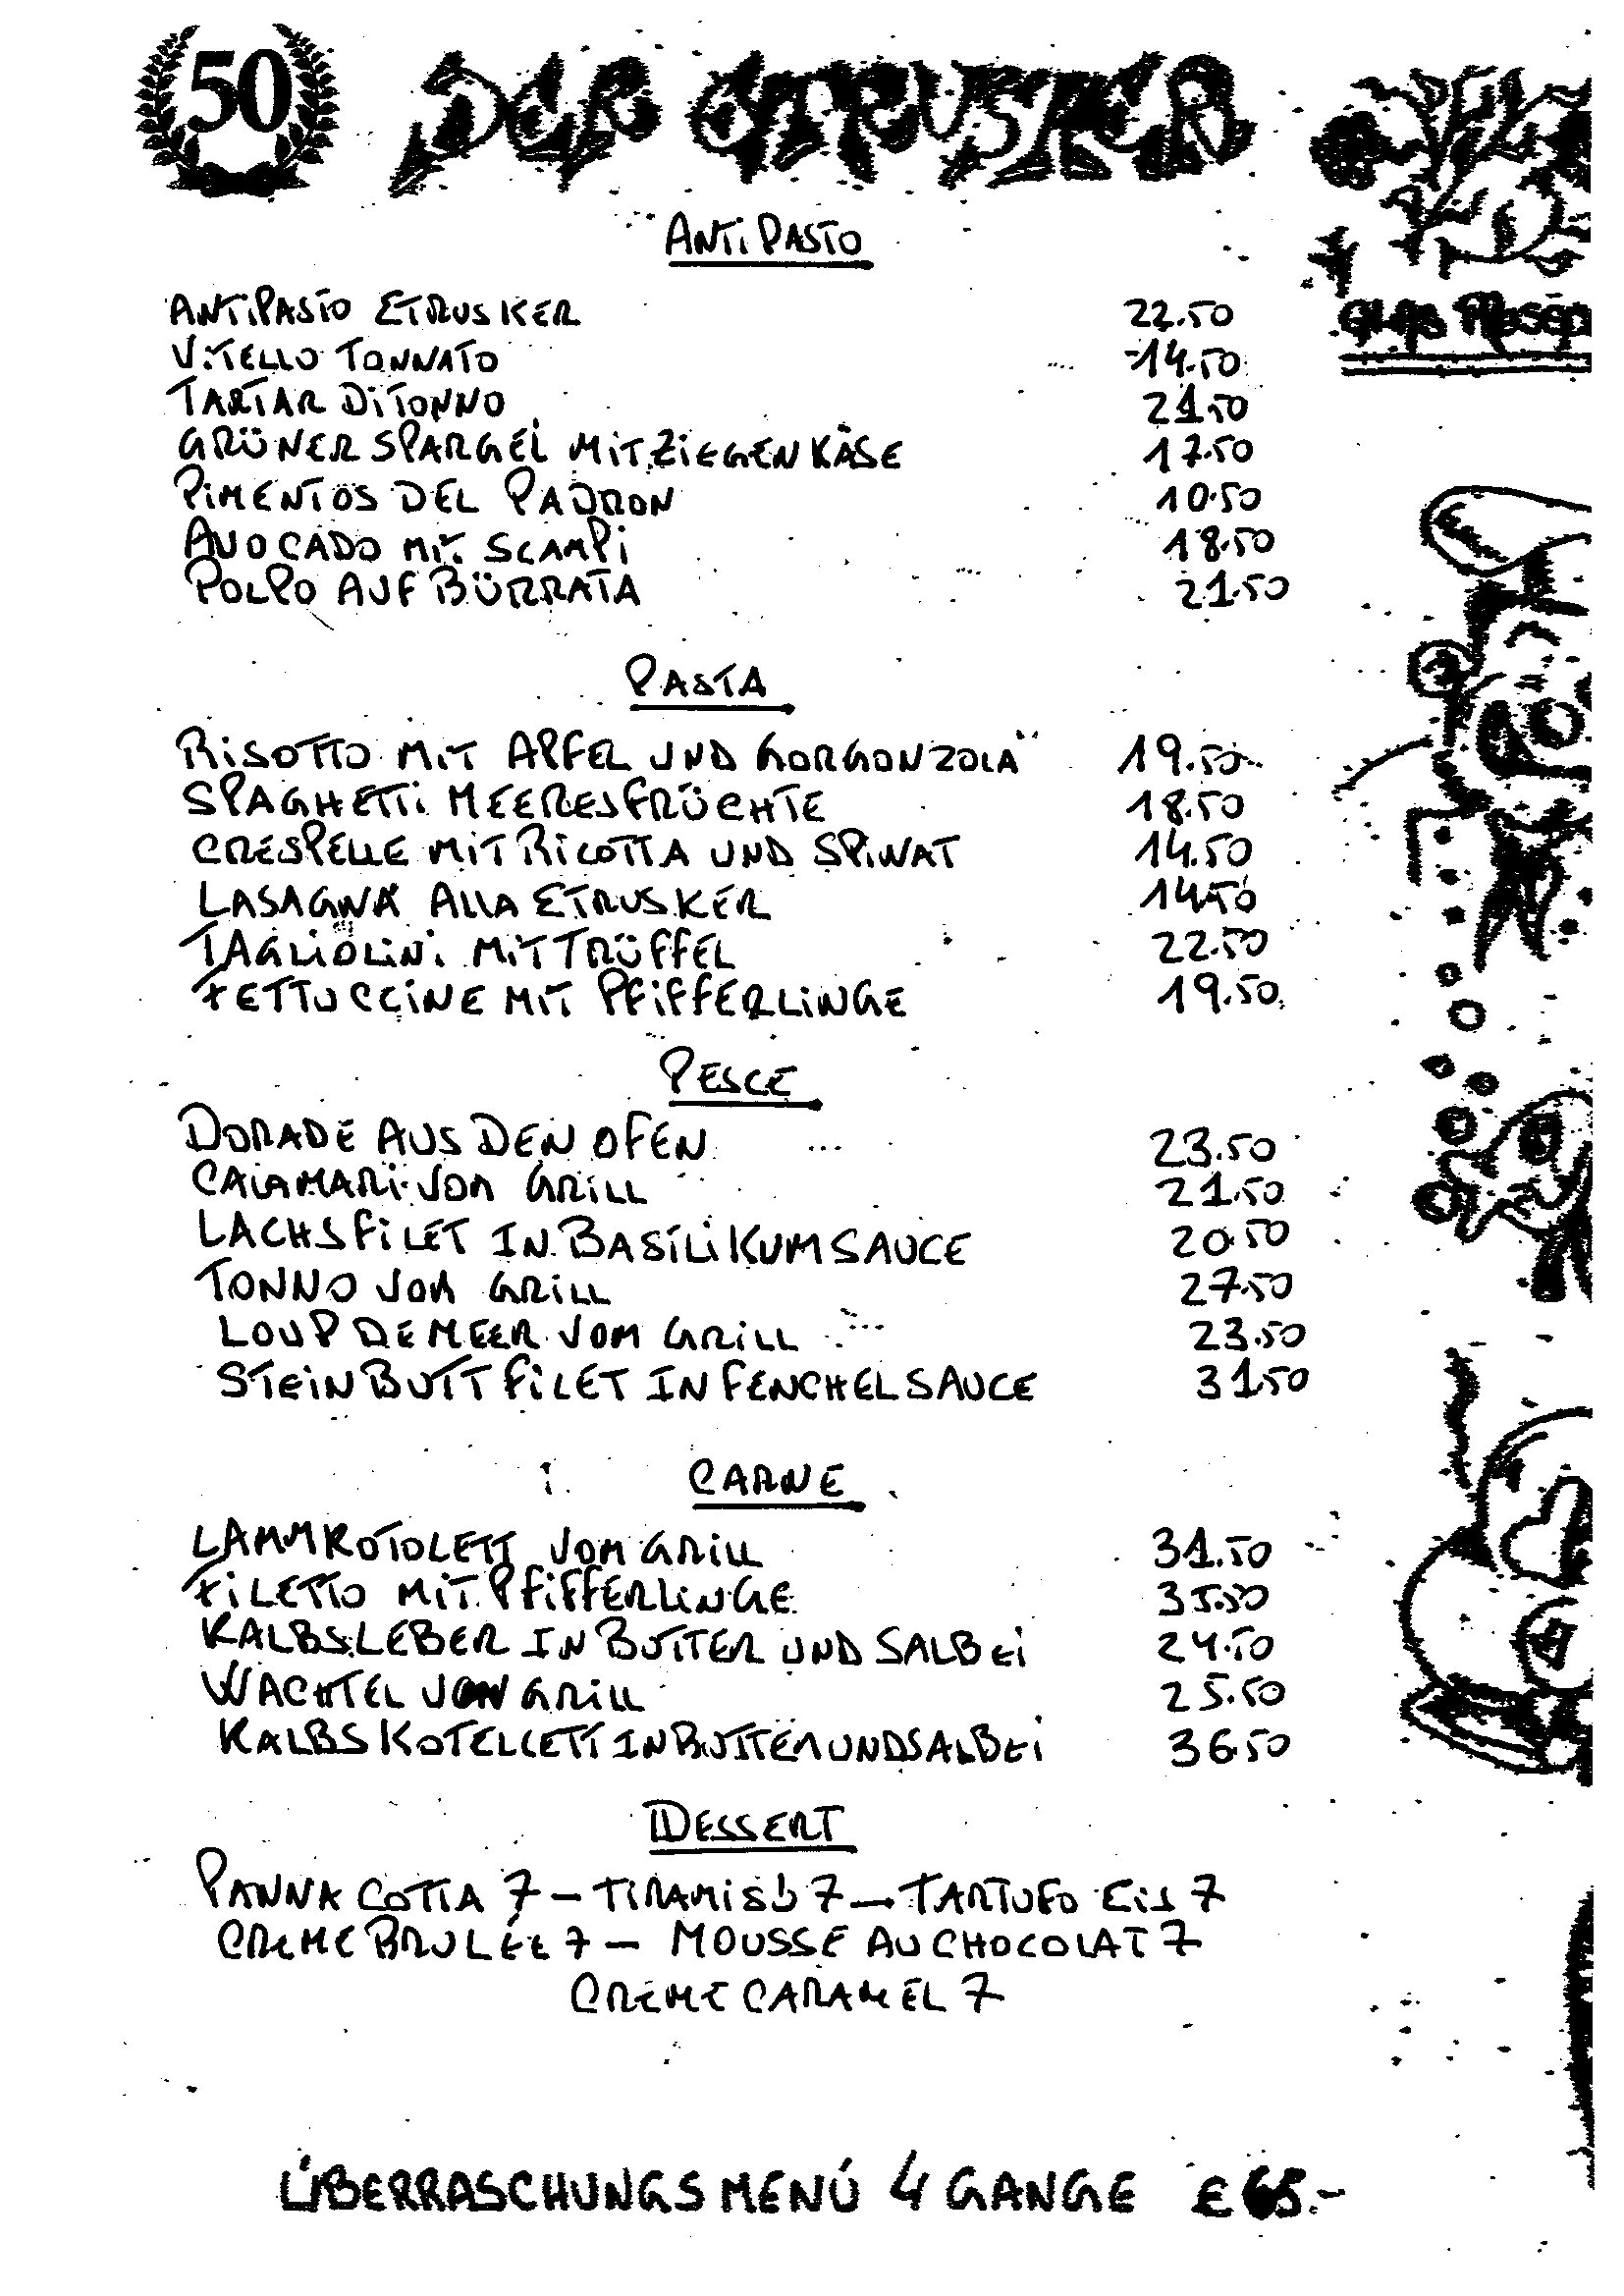 50 DER ETRUSKER
ANTIPASTO
ANTIPASTO ETRUSKER 22.50
VITELLO TONNATO 14.50
TARTAR DI TONNO 21.50
GRÜNER SPARGEL MIT ZIEGENKÄSE 17.50
PIMENTOS DEL PADRON 10.50
AVOCADO MIT SCAMPI 18.50
POLPO AUF BÜRRATA 21.50
PASTA
RISOTTO MIT APFEL UND GORGONZOLA 19.50
SPAGHETTI MEERESFRÜCHTE 18.50
CRESPELLE MIT RICOTTA UND SPINAT 14.50
LASAGNA ALLA ETRUSKER 14.50
TAGLIOLINI MIT TRÜFFEL 22.50
FETTUCCINE MIT PFIFFERLINGE 19.50
PESCE
DORADE AUS DEN OFEN 23.50
CALAMARI VOM GRILL 21.50
LACHSFILET IN BASILIKUMSAUCE 20.50
TONNO VOM GRILL 27.50
LOUP DE MEER VOM GRILL 23.50
STEINBUTTFILET IN FENCHELSAUCE 31.50
CARNE
LAMMKOTOLETT VOM GRILL 31.50
FILETTO MIT PFIFFERLINGE 35.50
KALBSLEBER IN BUTTER UND SALBEI 24.50
WACHTEL VON GRILL 25.50
KALBSKOTELLETT IN BUTTER UND SALBEI 36.50
DESSERT
PANNA COTTA 7 – TIRAMISÙ 7 – TARTUFO EIS 7
CREME BRULÉE 7 – MOUSSE AU CHOCOLAT 7
CREME CARAMEL 7
ÜBERRASCHUNGSMENÚ 4 GANGE € 65.-